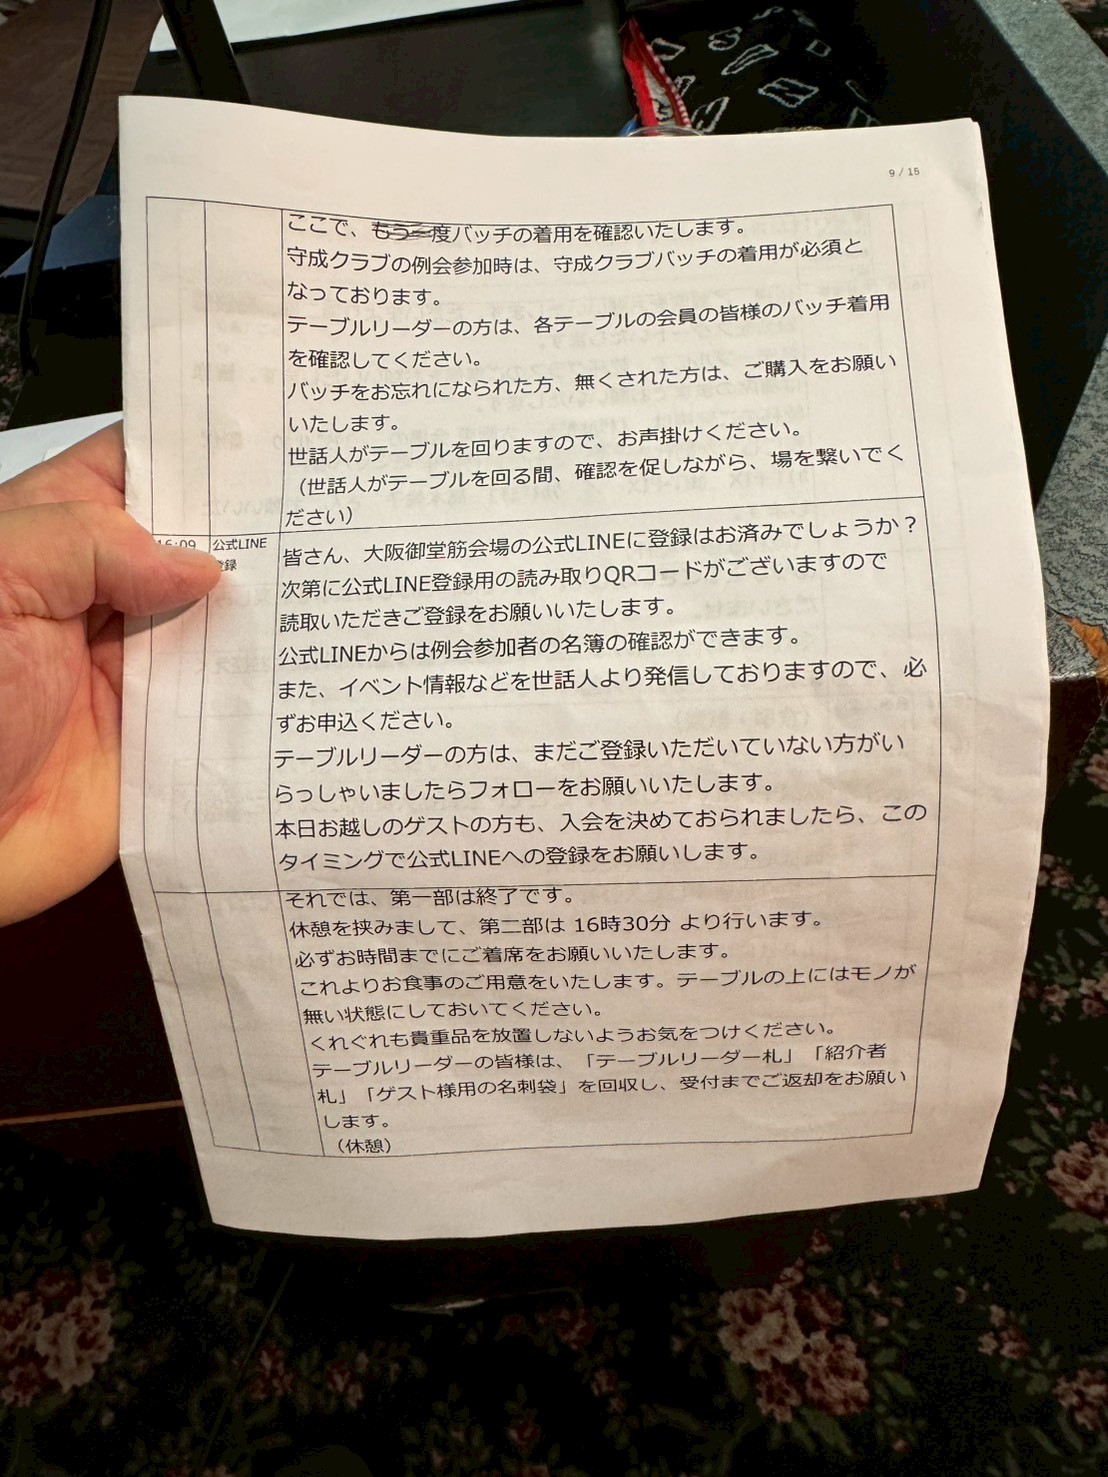 9 / 15
ここで、もう一度バッチの着用を確認いたします。
守成クラブの例会参加時は、守成クラブバッチの着用が必須と
なっております。
テーブルリーダーの方は、各テーブルの会員の皆様のバッチ着用
を確認してください。
バッチをお忘れになられた方、無くされた方は、ご購入をお願い
いたします。
世話人がテーブルを回りますので、お声掛けください。
（世話人がテーブルを回る間、確認を促しながら、場を繋いでく
ださい）
16:09
公式LINE
登録
皆さん、大阪御堂筋会場の公式LINEに登録はお済みでしょうか？
次第に公式LINE登録用の読み取りQRコードがございますので
読取いただきご登録をお願いいたします。
公式LINEからは例会参加者の名簿の確認ができます。
また、イベント情報などを世話人より発信しておりますので、必
ずお申込ください。
テーブルリーダーの方は、まだご登録いただいていない方がい
らっしゃいましたらフォローをお願いいたします。
本日お越しのゲストの方も、入会を決めておられましたら、この
タイミングで公式LINEへの登録をお願いします。
それでは、第一部は終了です。
休憩を挟みまして、第二部は 16時30分 より行います。
必ずお時間までにご着席をお願いいたします。
これよりお食事のご用意をいたします。テーブルの上にはモノが
無い状態にしておいてください。
くれぐれも貴重品を放置しないようお気をつけください。
テーブルリーダーの皆様は、「テーブルリーダー札」「紹介者
札」「ゲスト様用の名刺袋」を回収し、受付までご返却をお願い
します。
（休憩）